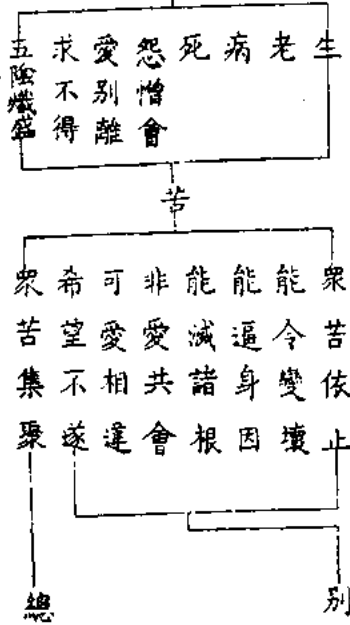 生
老
病
死
怨憎會
愛別離
求不得
五陰熾盛
苦
眾苦依止
能令變壞
能逼身因
能滅諸根
非愛共會
可愛相違
希望不遂
眾苦集聚
別
總